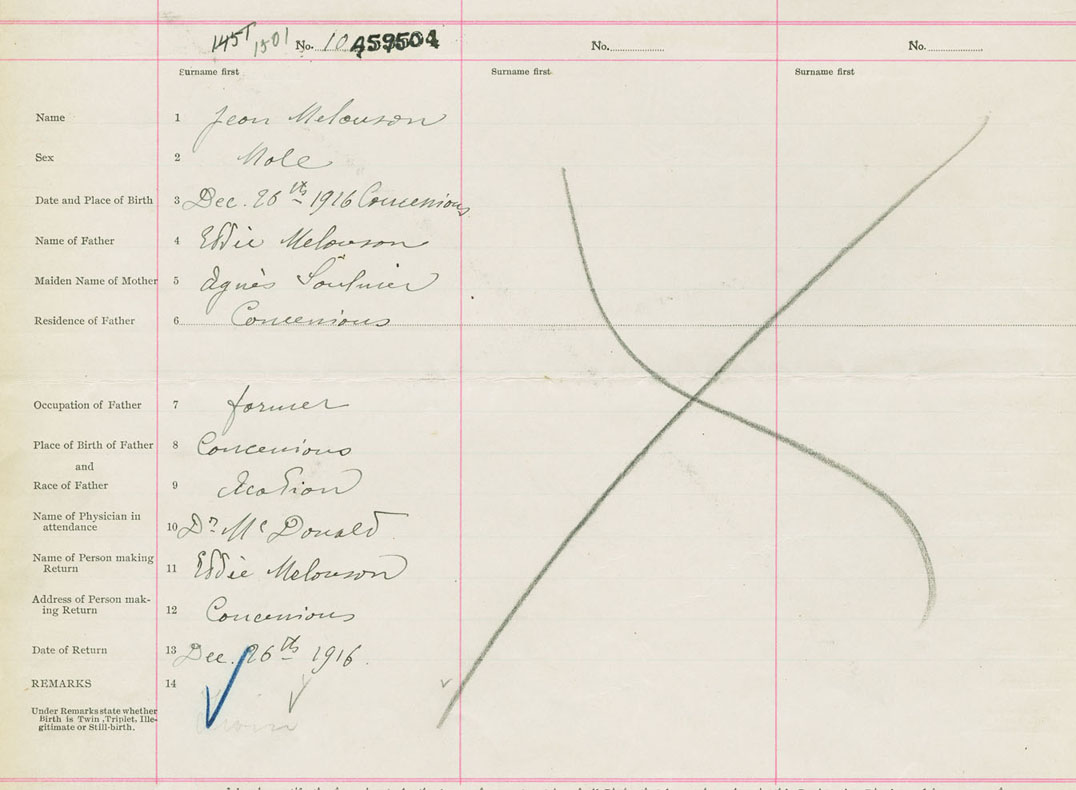 1451 1501 No. 10 A59504 No. No.
Surname first Surname first Surname first
Name 1 Jean Melanson
Sex 2 Male
Date and Place of Birth 3 Dec. 26th 1916 Concenious
Name of Father 4 Eddie Melanson
Maiden Name of Mother 5 Agnès Saulnier
Residence of Father 6 Concenious
Occupation of Father 7 farmer
Place of Birth of Father 8 Concenious
and
Race of Father 9 Acadian
Name of Physician in
attendance 10 Dr McDonald
Name of Person making
Return 11 Eddie Melanson
Address of Person mak-
ing Return 12 Concenious
Date of Return 13 Dec. 26th 1916.
REMARKS 14
Under Remarks state whether
Birth is Twin, Triplet, Ille-
gitimate or Still-birth.